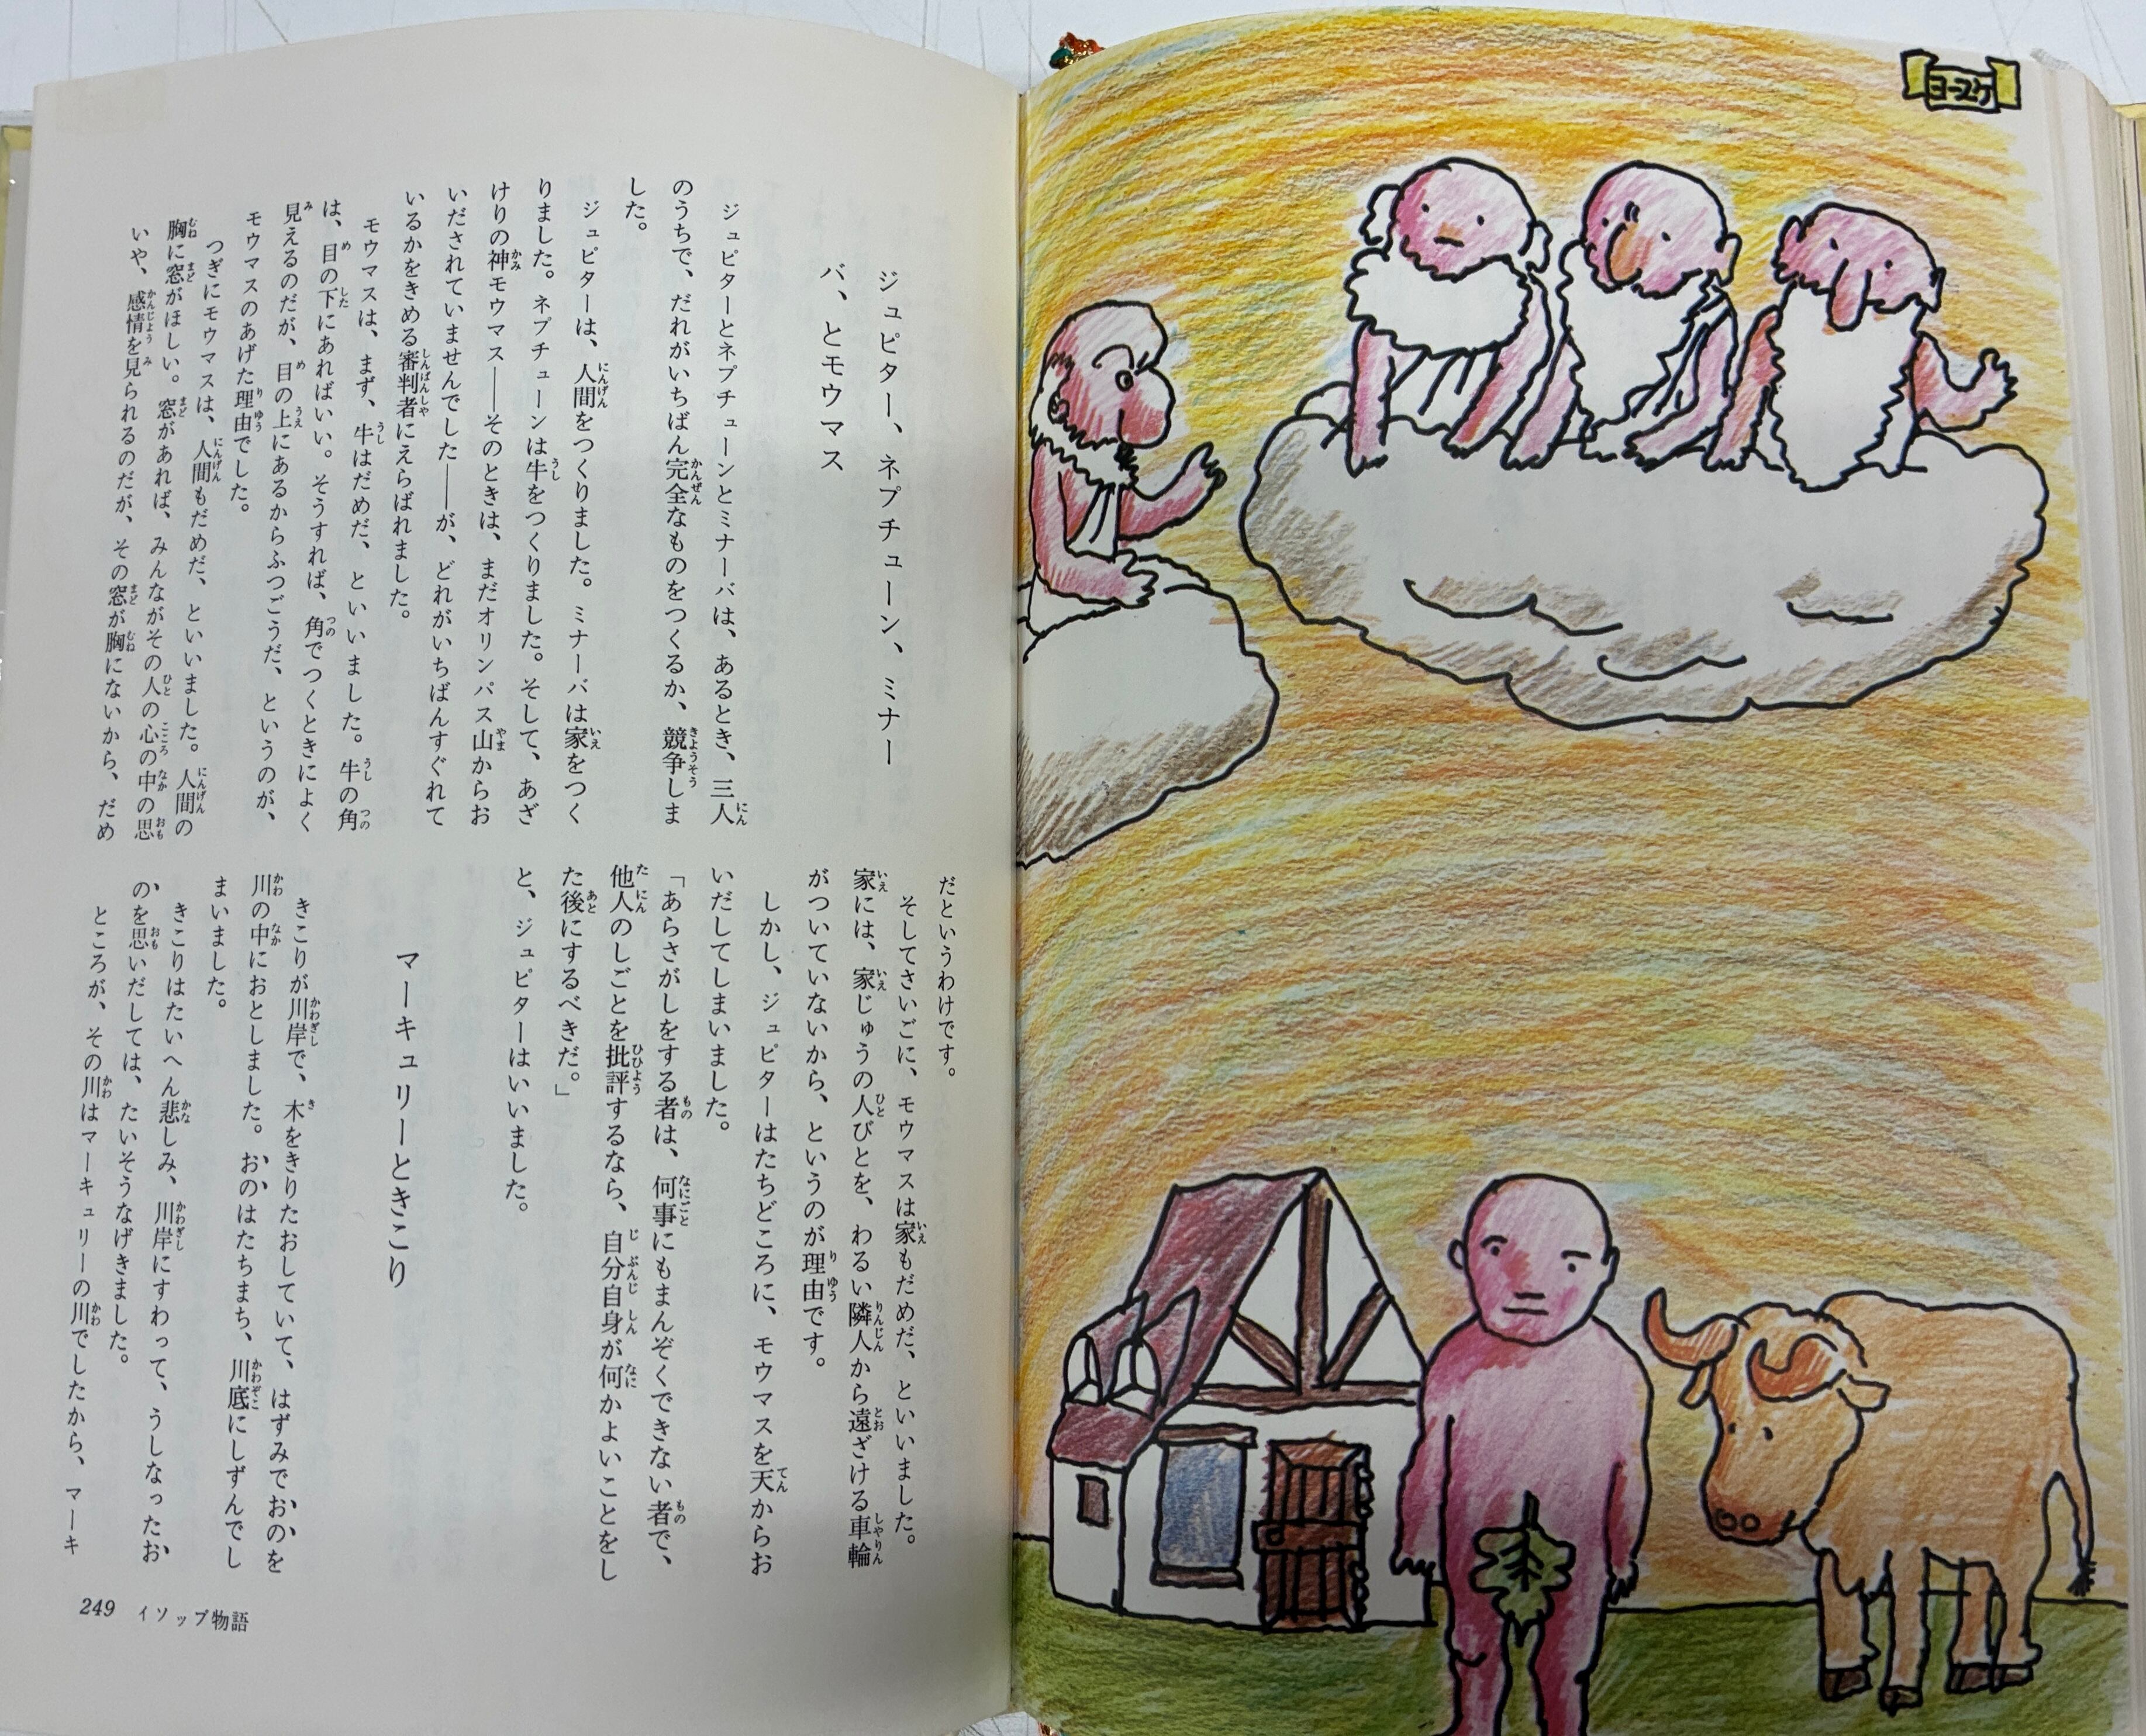 ヨースケ
ジュピター、ネプチューン、ミナー
バ、とモウマス
ジュピターとネプチューンとミナーバは、あるとき、三人
のうちで、だれがいちばん完全なものをつくるか、競争しま
した。
ジュピターは、人間をつくりました。ミナーバは家をつく
りました。ネプチューンは牛をつくりました。そして、あざ
けりの神モウマス――そのときは、まだオリンパス山からお
いだされていませんでした――が、どれがいちばんすぐれて
いるかをきめる審判者にえらばれました。
モウマスは、まず、牛はだめだ、といいました。牛の角
は、目の下にあればいい。そうすれば、角でつくときによく
見えるのだが、目の上にあるからふつごうだ、というのが、
モウマスのあげた理由でした。
つぎにモウマスは、人間もだめだ、といいました。人間の
胸に窓がほしい。窓があれば、みんながその人の心の中の思
いや、感情を見られるのだが、その窓が胸にないから、だめ
だというわけです。
そしてさいごに、モウマスは家もだめだ、といいました。
家には、家じゅうの人びとを、わるい隣人から遠ざける車輪
がついていないから、というのが理由です。
しかし、ジュピターはたちどころに、モウマスを天からお
いだしてしまいました。
「あらさがしをする者は、何事にもまんぞくできない者で、
他人のしごとを批評するなら、自分自身が何かよいことをし
た後にするべきだ。」
と、ジュピターはいいました。
マーキュリーときこり
きこりが川岸で、木をきりたおしていて、はずみでおのを
川の中におとしました。おのはたちまち、川底にしずんでし
まいました。
きこりはたいへん悲しみ、川岸にすわって、うしなったお
のを思いだしては、たいそうなげきました。
ところが、その川はマーキュリーの川でしたから、マーキ
249 イソップ物語